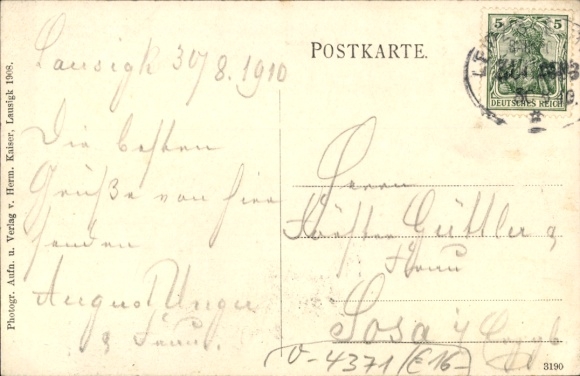 Photogr. Aufn. u. Verlag v. Herm. Kaiser, Lausigk 1908.
Lausigk 30/8. 1910
Die besten
Grüße von hier
senden
August Unger
& Frau.
POSTKARTE.
5 5
DEUTSCHES REICH
Herrn
Förster Güttler &
Frau
Sosa i/ Erzgb
V-4371 (E16-
3190